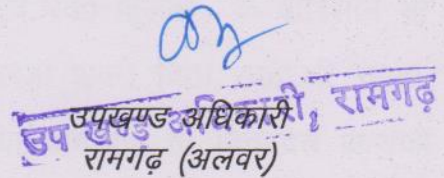 उप खण्ड अधिकारी, रामगढ़
उपखण्ड अधिकारी
रामगढ़ (अलवर)